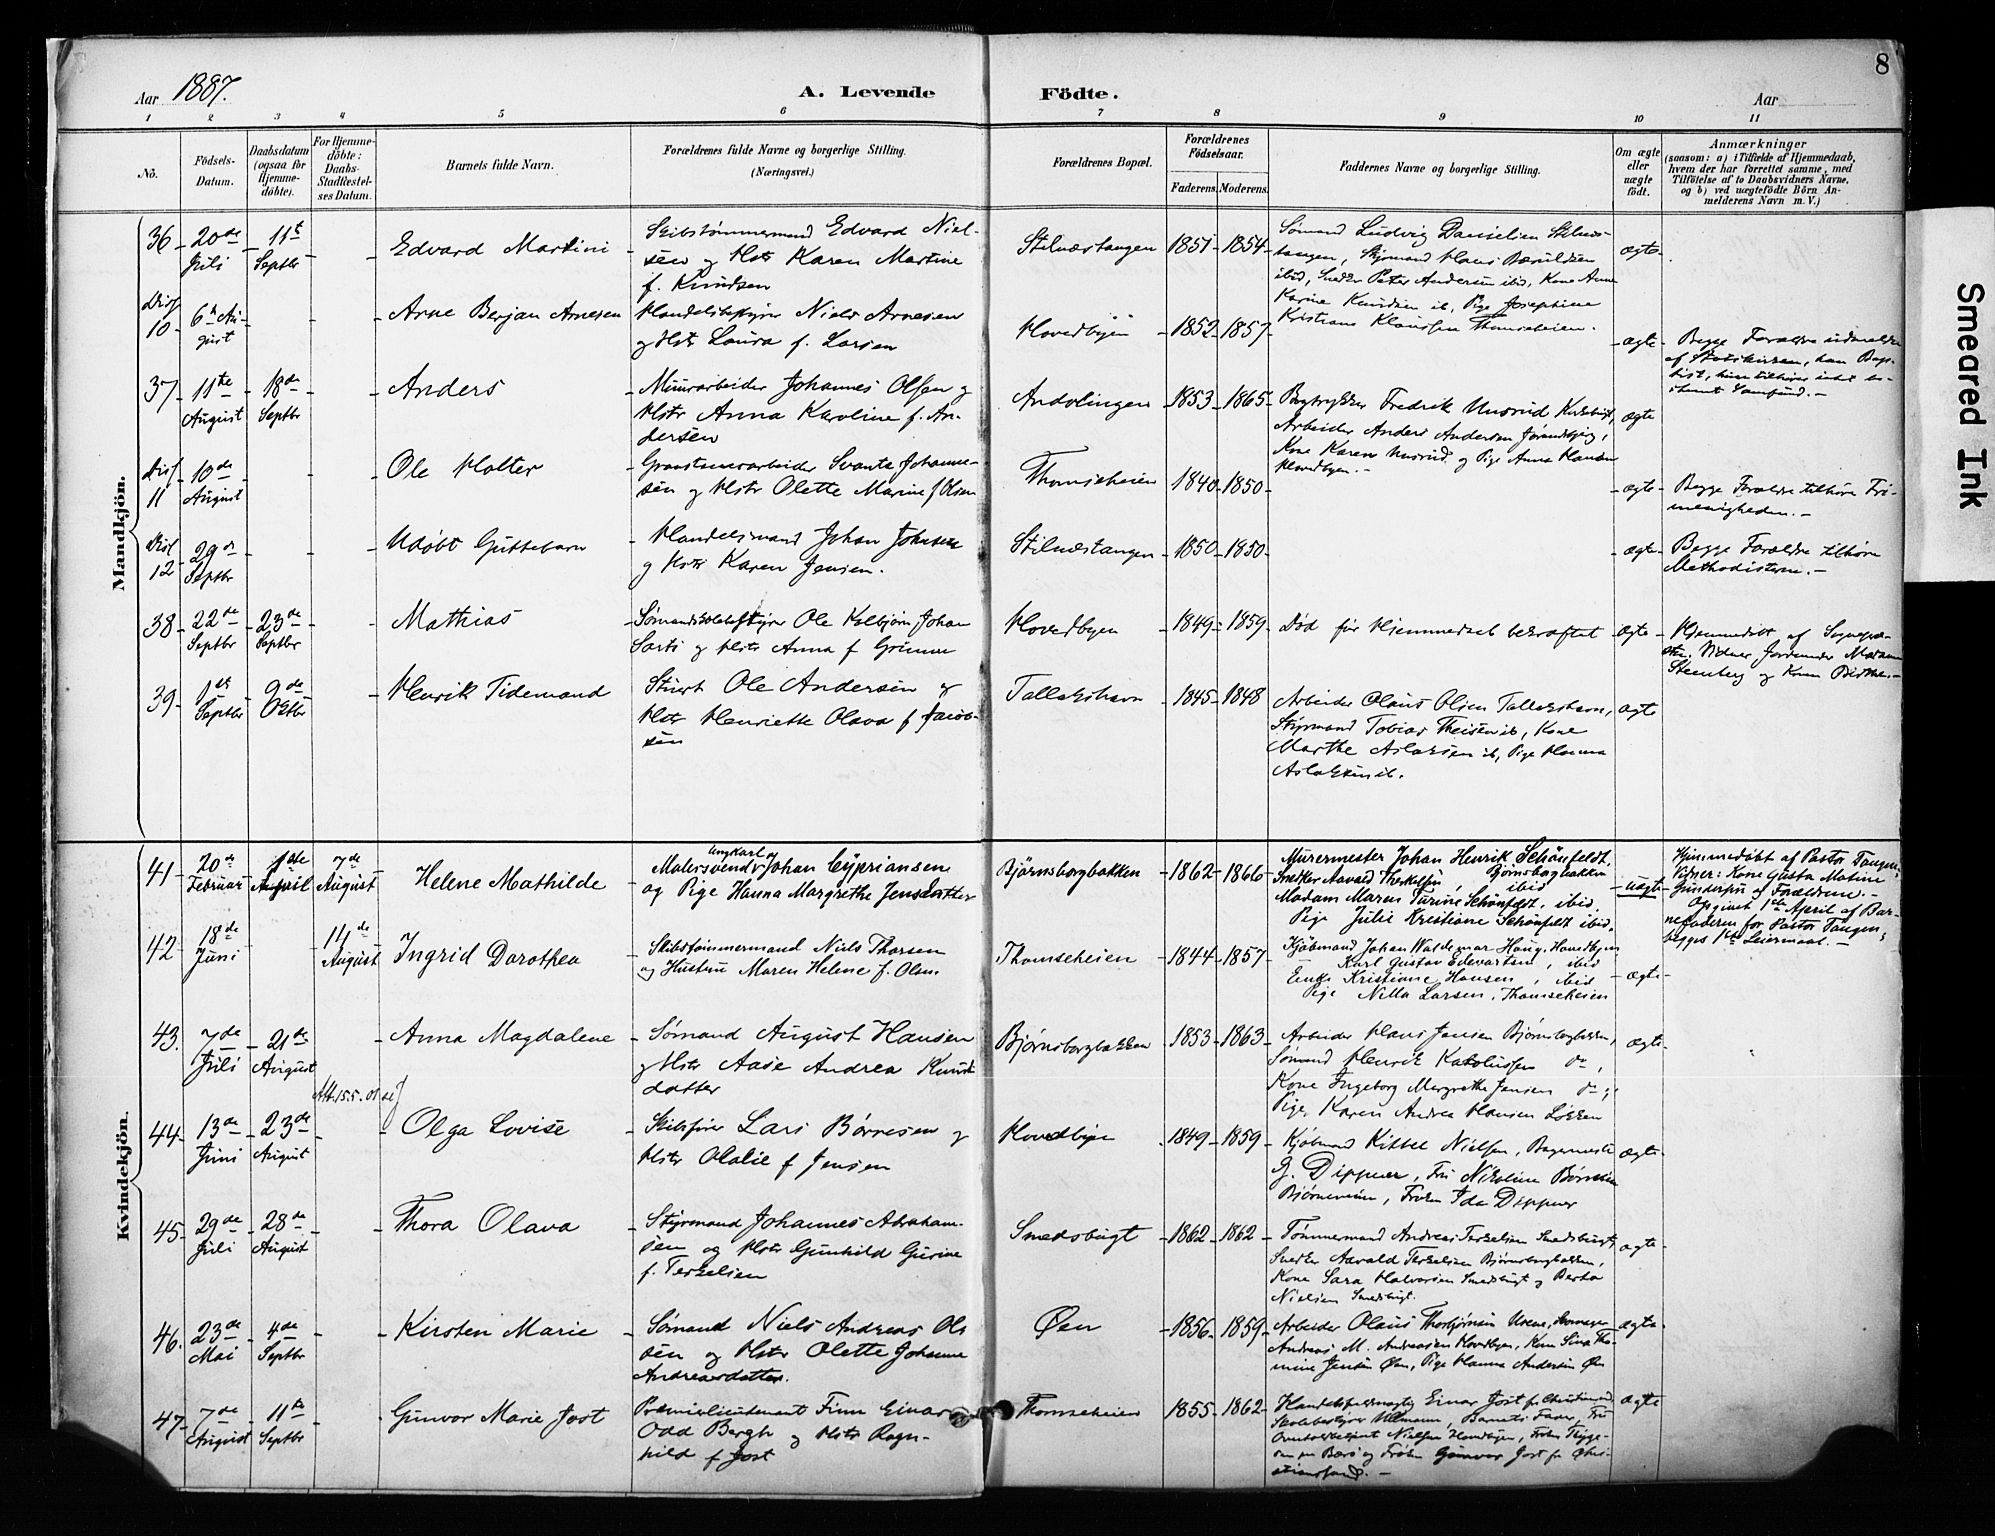 8
Aar 1887.
A. Levende Födte.
Aar
1 2 3 4 5 6 7 8 9 10 11
No.
Födsels-Datum.
Daabsdatum (ogsaa for Hjemme-döbte).
For Hjemme-döbte: Daabs-Stadfæstel-ses Datum.
Barnets fulde Navn.
Forældrenes fulde Navne og borgerlige Stilling.
(Næringsvei.)
Forældrenes Bopæl.
Forældrenes Födselsaar.
Faderens. Moderens.
Faddernes Navne og borgerlige Stilling.
Om ægte eller uægte födt.
Anmærkninger
(saasom: a) i Tilfælde af Hjemmedaab,
hvem der har forrettet samme, med
Tilföielse af to Daabsvidners Navne,
og b) ved uægtefödte Börn An-
melderens Navn m. V.)
Mandkjön.
36 20de Juli 11te Septbr
Edvard Martini
Skibstømmermand Edvard Niel-
sen og Hstr Karen Martine
f. Knudsen
Stilnæstangen 1851 1854
Sømand Ludvig Danielsen Stilnæs-
tangen, Styrmand Hans
ibid, Snedker Peter Andersen ibid, Kone Anne
Karine Knudsen ib, Pige Josephine
Kristiane Klausen Thomseheien.
ægte
Dis. 10 6te August
Arne Berjan Arnesen
Handelsbestyrer Niels Arnesen
og Hstr Laura f. Larsen
Hovedbyen 1852 1857
ægte
Begge Forældre udmeldte
af Statskirken, han Bap-
tist, hun tilhører intet be-
stemt Samfund.
37 11te August 18de Septbr
Anders
Muurarbeider Johannes Olsen og
Hstr Anna Karoline f. An-
dersen
Andvlingen 1853 1865
Bogtrykker Fredrik
Arbeider Anders Andersen
Kone Karen og Pige Anna Hansen
Hovedbyen.
ægte
Dis. 11 10de August
Ole Holter
Graastensarbeider Svante Johanne-
sen og Hstr Olette Marine f Olsen
Thomseheien 1840 1850
ægte
Begge Forældre tilhøre Fri-
menigheden.
Dis. 12 29de Septbr
Udøbt Guttebarn
Handelsmand Johan Johnsen
og Hstr Karen Jensen.
Stilnæstangen 1850 1850
ægte
Begge Forældre tilhøre
Methodisterne.
38 22de Septbr 23de Septbr
Mathias
Sømandsskolebestyrer Ole Kolbjørn Johan
Sartz og Hstr Anna f Grimm
Hovedbyen 1849 1859
Død før Hjemmedaab bekræftet
ægte
Hjemmedøbt af Sognepræ-
sten. Vidner Jordemoder Madam
Steenberg og Konen
39 1ste Septbr 9de Octbr
Henrik Tidemand
Stuert Ole Andersen og
Hstr Henriette Olava f Jacob-
sen
Tallakshavn 1845 1848
Arbeider Olaus Olsen Tallakshavn,
Styrmand Tobias Theisen ib, Kone
Marthe Aslaksen ib, Pige Hanna
Aslaksen ib.
ægte
Kvindekjön.
41 20de Februar 1ste April 7de August
Helene Mathilde
Ungkarl og
Malersvend Johan Cÿpriansen
og Pige Hanna Margrethe Jensdatter
Bjørnsborgbakken 1862 1866
Murermester Johan Henrik Schönfeldt,
Snedker Aavald Therkelsen, Bjørnsborgbakken
ibid
Madam Maren Turine Schönfeldt, ibid
Pige Julie Kristiane Schönfeldt ibid.
uægte
Hjemmedøbt af Pastor Tangen,
Vidner: Kone Gusta Matine
Gundersen og Forældrene.
Opgivet 1ste April af Bar-
nefaderen for Pastor Tangen,
begges 1ste Leiermaal.
42 18de Juni 14de August
Ingrid Dorothea
Skibstømmermand Niels Thorsen
og Hustru Maren Helene f. Olsen.
Thomseheien 1844 1857
Kjøbmand Johan Waldemar Haug, Hovedbyen
Karl Gustav Edevartsen, ibid
Enke Kristiane Hansen, ibid
Pige Nilla Larsen, Thomseheien
ægte
43. 7de Juli 21de August
Anna Magdalene
Sømand August Hansen
og Hstr Aase Andrea Knuds-
datter
Bjørnsborgbakken 1853 1863
Arbeider Hans Jensen Bjørnsborgbakken,
Sømand Henrik Karolussen do,
Kone Ingeborg Margrethe Jensen do;
Pige Karen Andrea Hansen Løkken
ægte
Att. 15.5.01
44 13de Juni 23de August
Olga Lovise
Skibsfører Lars Børresen og
Hstr Olalie f Jensen
Hovedbyen 1849 1859
Kjøbmand Kittel Nielsen, Bagermester
G. Dippner, Fru Nikoline Børresen
Bjørneveien, Frøken Ida Dippner
ægte
45 29de Juli 28de August
Thora Olava
Styrmand Johannes Abraham-
sen og Hstr Gunhild Gurine
f. Terkelsen
Smedsbugt 1862 1862
Tømmermand Andreas Terkelsen Smedsbugt,
Snedker Aavald Terkelsen Bjørnsborgbakken,
Kone Sara Halvorsen Smedsbugt og Berta
Nielsen Smedsbugt.
ægte
46. 23de Mai 4de Septbr
Kirsten Marie
Sømand Niels Andreas Ol-
sen og Hstr Olette Johanne
Andreasdatter.
Øen 1856 1859
Arbeider Olaus Thorbjørnsen
Andreas M. Andreassen Hovedbyen, Kone Sina Tho-
mine Jensen Øen, Pige Hanna Andersen Øen
ægte
47 7de August 11te Septbr
Gunvor Marie Jost
Premierlieutenant Finn Einar
Odd Bergh og Hstr Ragn-
hild f Jost
Thomseheien 1855 1862
Handelsfuldmægtig Einar Jost fr Christiansand
Skolebestyrer Ullmann, Barnets Fader, Fru
Nielsen Hovedbyen, Frøken
og Frøken Gunvor Jost fr Chri-
stianssand.
ægte
Smeared Ink